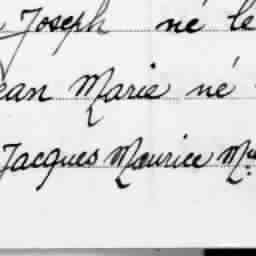 Joseph né le
ean Marie né
Jacques Maurice